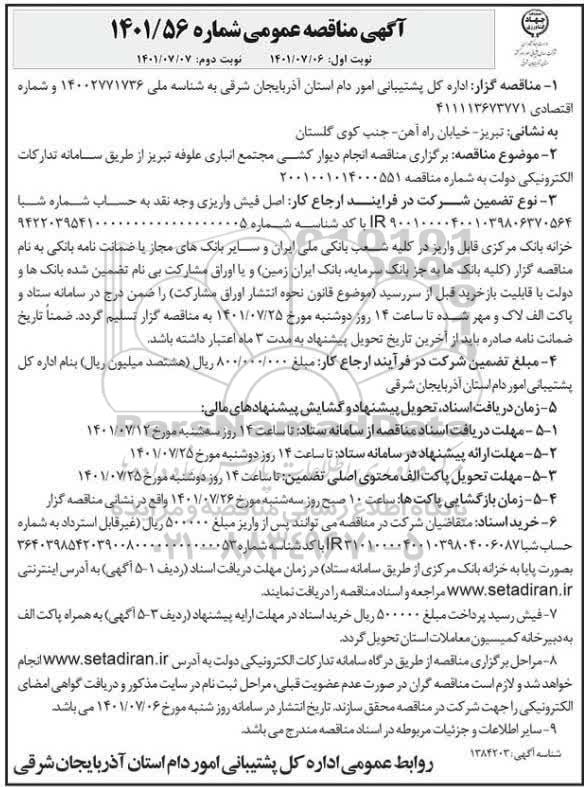 آگهی مناقصه عمومی شماره ۱۴۰۱/۵۶
نوبت اول: ۱۴۰۱/۰۷/۰۶ نوبت دوم: ۱۴۰۱/۰۷/۰۷
۱- مناقصه گزار: اداره کل پشتیبانی امور دام استان آذربایجان شرقی به شناسه ملی ۱۴۰۰۲۷۷۱۷۳۶ و شماره
اقتصادی ۴۱۱۱۱۳۶۷۳۷۷۱
به نشانی: تبریز- خیابان راه آهن- جنب کوی گلستان
۲- موضوع مناقصه: برگزاری مناقصه انجام دیوار کشی مجتمع انباری علوفه تبریز از طریق سامانه تدارکات
الکترونیکی دولت به شماره مناقصه ۲۰۰۱۰۰۱۰۱۴۰۰۰۵۵۱
۳- نوع تضمین شرکت در فرایند ارجاع کار: اصل فیش واریزی وجه نقد به حساب شماره شبا
IR ۹۰۰۱۰۰۰۰۴۰۰۱۰۳۹۸۰۶۳۷۰۵۶۴ با کد شناسه شماره
خزانه بانک مرکزی قابل واریز در کلیه شعب بانکی ملی ایران و سایر بانک های مجاز یا ضمانت نامه بانکی به نام
مناقصه گزار (کلیه بانک ها به جز بانک سرمایه، بانک ایران زمین) و یا اوراق مشارکت بی نام تضمین شده بانک ها و
دولت با قابلیت بازخرید قبل از سررسید (موضوع قانون نحوه انتشار اوراق مشارکت) را ضمن درج در سامانه ستاد و
پاکت الف لاک و مهر شده تا ساعت ۱۴ روز دوشنبه مورخ ۱۴۰۱/۰۷/۲۵ به مناقصه گزار تسلیم گردد. ضمناً تاریخ
ضمانت نامه صادره باید از آخرین تاریخ تحویل پیشنهاد به مدت ۳ ماه اعتبار داشته باشد.
۴- مبلغ تضمین شرکت در فرآیند ارجاع کار: مبلغ ۸۰۰/۰۰۰/۰۰۰ ریال (هشتصد میلیون ریال) بنام اداره کل
پشتیبانی امور دام استان آذربایجان شرقی
۵- زمان دریافت اسناد، تحویل پیشنهاد و گشایش پیشنهادهای مالی:
۵-۱- مهلت دریافت اسناد مناقصه از سامانه ستاد: تا ساعت ۱۴ روز سه‌شنبه مورخ ۱۴۰۱/۰۷/۱۲
۵-۲- مهلت ارائه پیشنهاد در سامانه ستاد: تا ساعت ۱۴ روز دوشنبه مورخ ۱۴۰۱/۰۷/۲۵
۵-۳- مهلت تحویل پاکت الف محتوی اصلی تضمین: تا ساعت ۱۴ روز دوشنبه مورخ ۱۴۰۱/۰۷/۲۵
۵-۴- زمان بازگشایی پاکت ها: ساعت ۱۰ صبح روز سه‌شنبه مورخ ۱۴۰۱/۰۷/۲۶ واقع در نشانی مناقصه گزار
۶- خرید اسناد: متقاضیان شرکت در مناقصه می توانند پس از واریز مبلغ ۵۰۰۰۰۰ ریال (غیرقابل استرداد به شماره
حساب شبا IR۳۱۰۱۰۰۰۰۴۰۰۱۰۳۹۸۰۴۰۰۶۰۸۷ با کد شناسه شماره
بصورت پایا به خزانه بانک مرکزی از طریق سامانه ستاد) در زمان مهلت دریافت اسناد (ردیف ۱-۵ آگهی) به آدرس اینترنتی
www.setadiran.ir مراجعه و اسناد مناقصه را دریافت نمایند.
۷- فیش رسید پرداخت مبلغ ۵۰۰۰۰۰ ریال خرید اسناد در مهلت ارایه پیشنهاد (ردیف ۳-۵ آگهی) به همراه پاکت الف
به دبیرخانه کمیسیون معاملات استان تحویل گردد.
۸- مراحل برگزاری مناقصه از طریق درگاه سامانه تدارکات الکترونیکی دولت به آدرس www.setadiran.ir انجام
خواهد شد و لازم است مناقصه گران در صورت عدم عضویت قبلی، مراحل ثبت نام در سایت مذکور و دریافت گواهی امضای
الکترونیکی را جهت شرکت در مناقصه محقق سازند. تاریخ انتشار در سامانه روز شنبه مورخ ۱۴۰۱/۰۷/۰۶ می باشد.
۹- سایر اطلاعات و جزئیات مربوطه در اسناد مناقصه مندرج می باشد.
شناسه آگهی: ۱۳۸۴۲۰۳
روابط عمومی اداره کل پشتیبانی امور دام استان آذربایجان شرقی